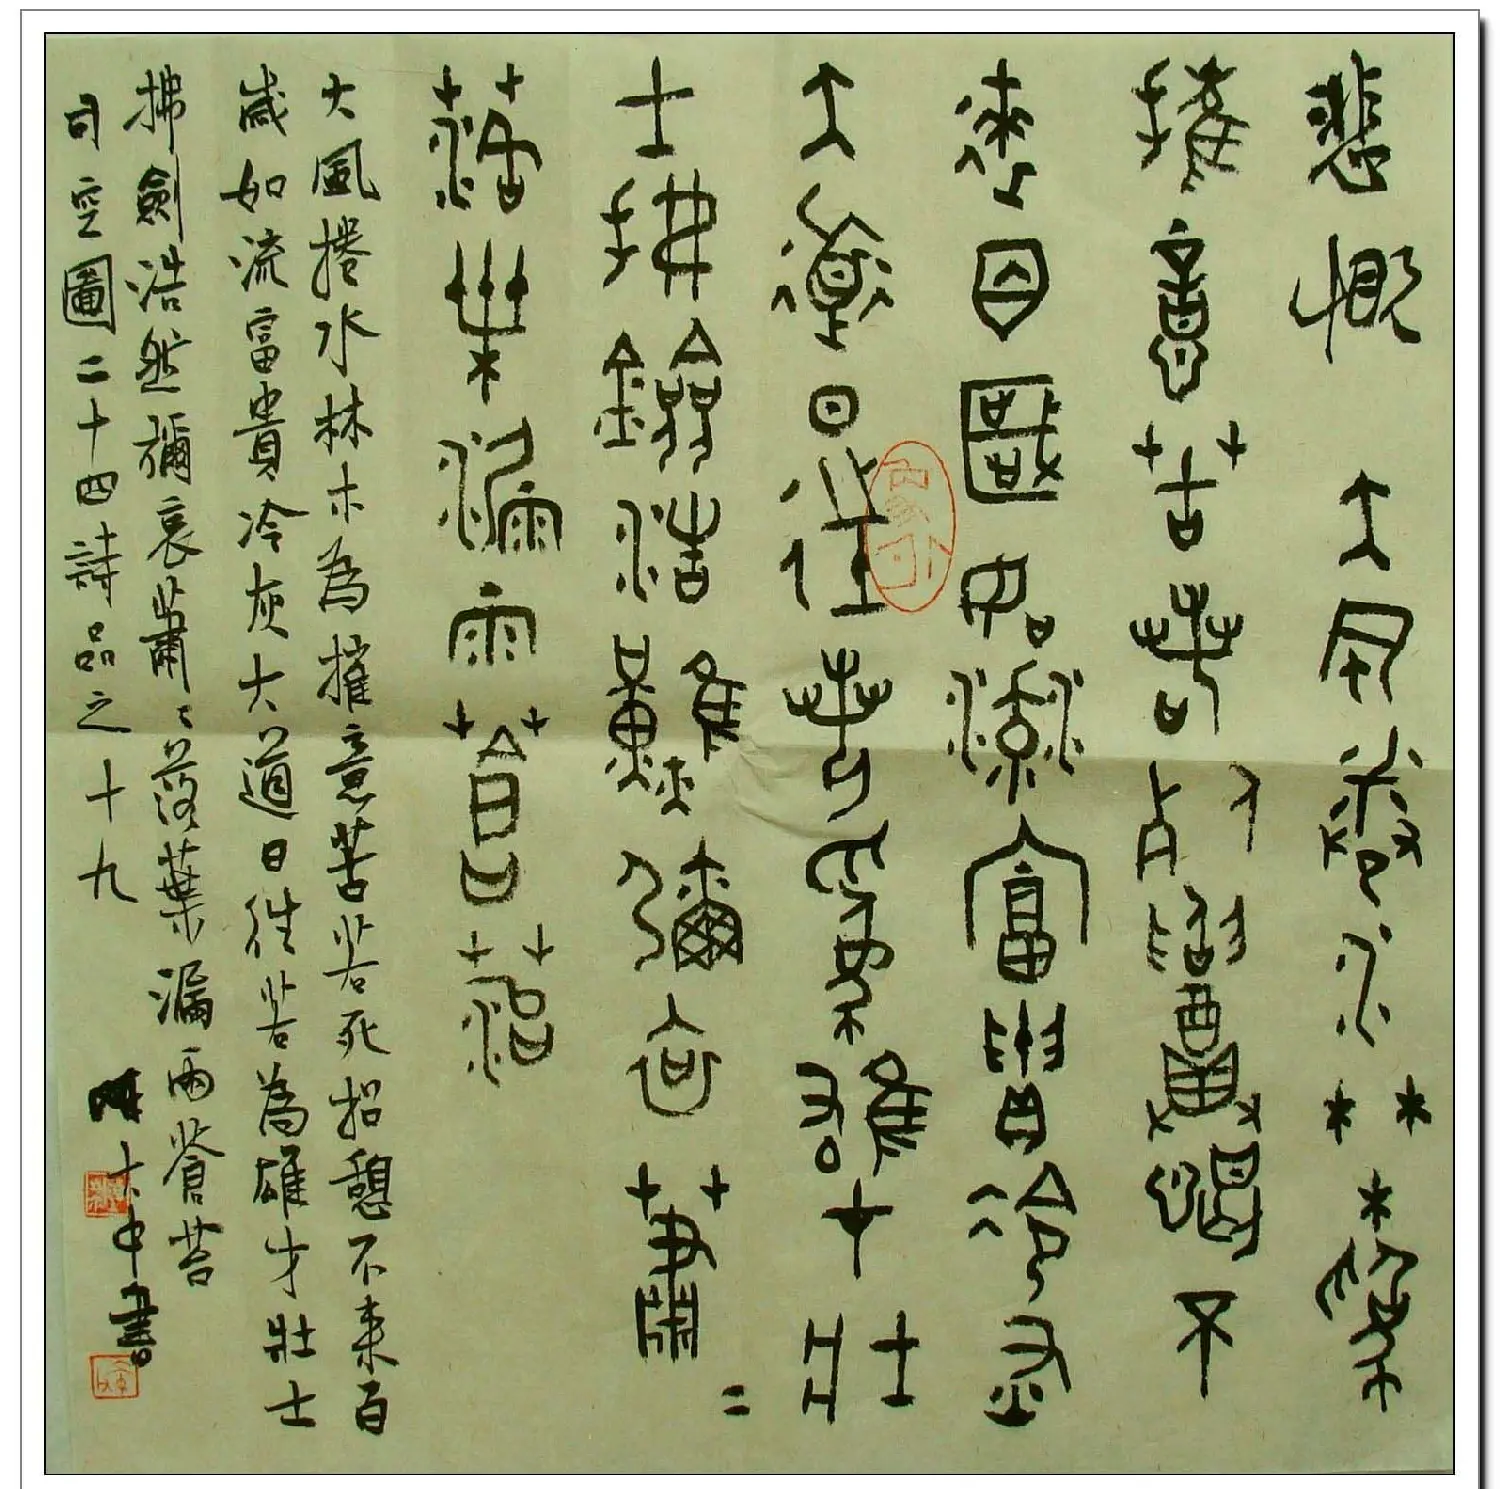 悲慨 大風捲水林木為
摧意苦若死招憩不
來百歲如流富貴冷灰
大道日往若為雄才壯
士拂劍浩然彌哀蕭二
落葉漏雨蒼苔
大風捲水林木為摧意苦若死招憩不來百
歲如流富貴冷灰大道日往若為雄才壯士
拂劍浩然彌哀蕭〻落葉漏雨蒼苔
司空圖二十四詩品之十九
大中書